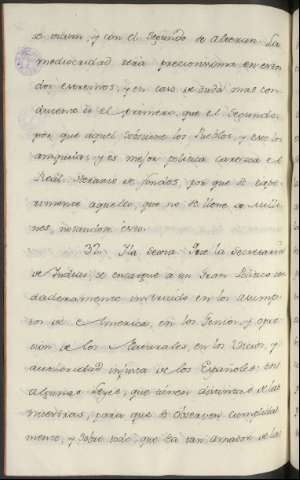 se crian, y con el segundo se atrasan. La
mediocridad será preciosisima en estos
dos extremos, y en caso de duda mas con
ducente es el primero, que el segundo,
por que aquel sostiene los Pueblos, y este los
aniquila, y es mejor politica carezca el
Real Herario de fondos, por que se expe-
rimente aquello, que no se llene de Millo-
nes, notandose esto.
32. Ha de ser: Que la Secretaria
de Yndias, se encargue a un Gran Politico ver
daderamente instruido en los asump-
tos de America, en los Genios, y opre-
sion de los Naturales, en los Vicios, y
autoridad injusta de los Españoles, con
algunas Leyes, que tienen distintas de las
nuestras, para que se observen cumplida
mente, y sobre todo, que sea tan amador de las